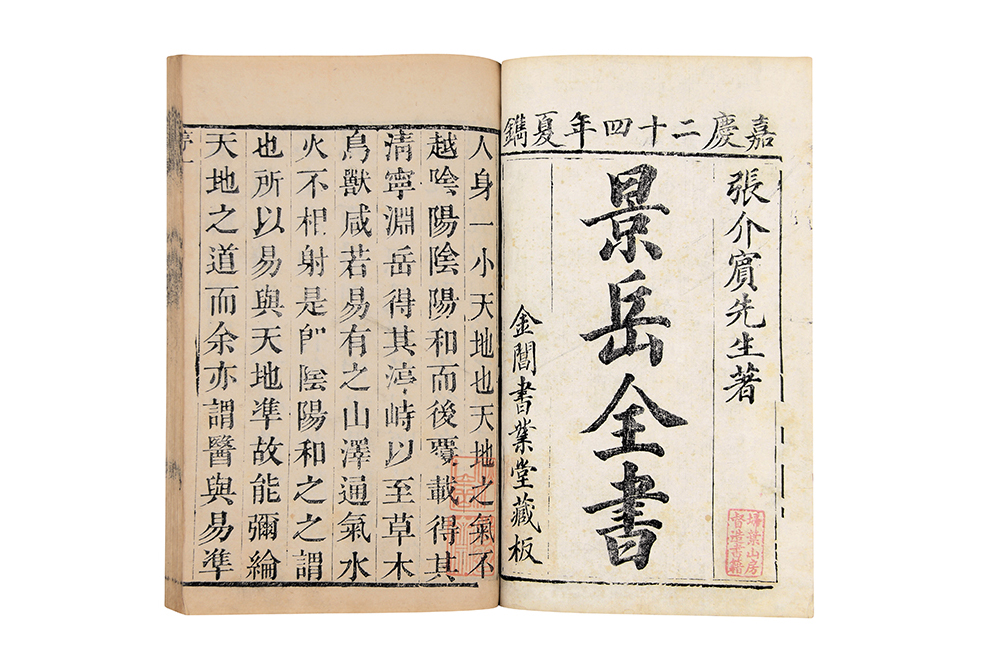 嘉慶二十四年夏鐫
張介賓先生著
景岳全書
金閶書業堂藏板
掃葉山房
督造書籍
人身一小天地也天地之氣不
越陰陽陰陽和而後覆載得其
淸寧淵岳得其渟峙以至草木
鳥獸咸若易有之山澤通氣水
火不相射是卽陰陽和之之謂
也所以易與天地準故能彌綸
天地之道而余亦謂醫與易準